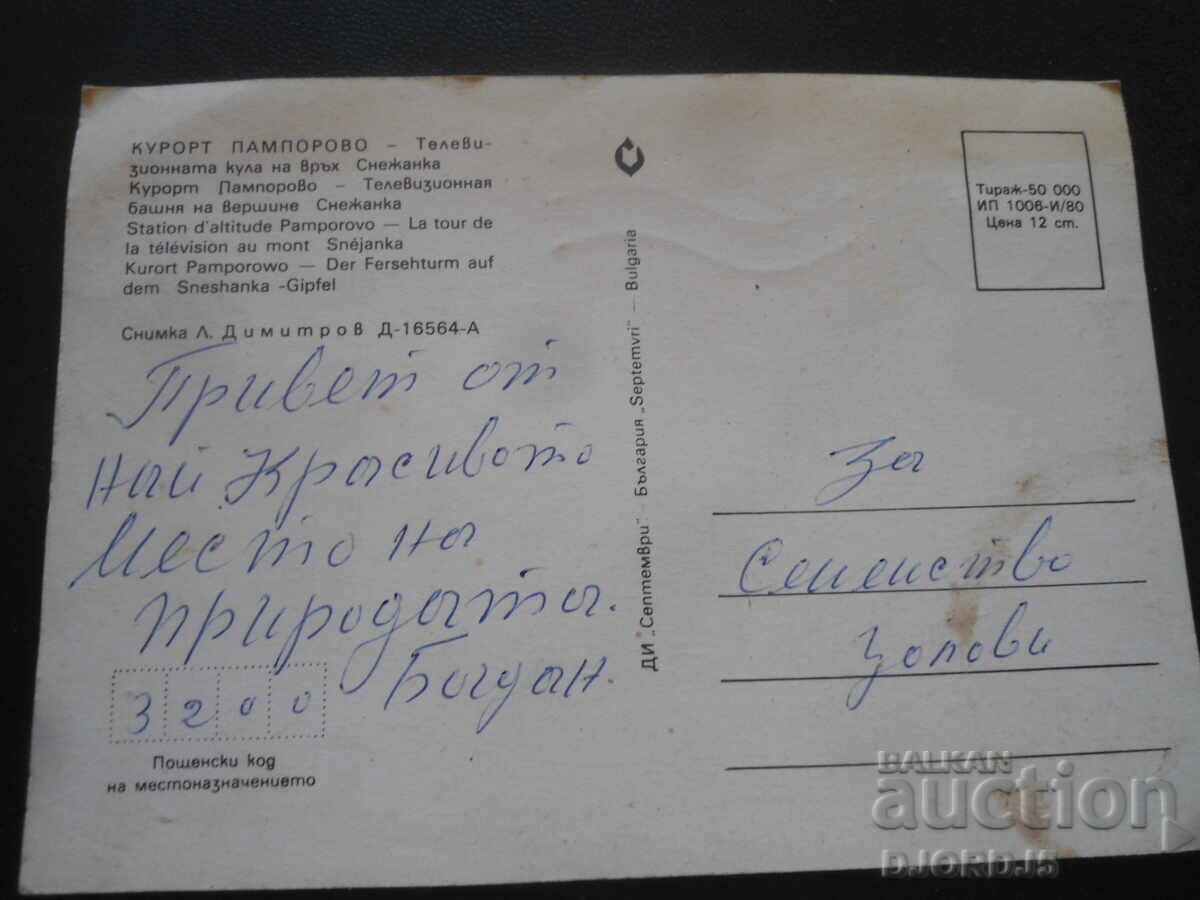 КУРОРТ ПАМПОРОВО – Телеви-
зионната кула на връх Снежанка
Курорт Пампорово – Телевизионная
башня на вершине Снежанка
Station d'altitude Pamporovo – La tour de
la télévision au mont Snéjanka
Kurort Pamporowo – Der Fersehturm auf
dem Sneshanka -Gipfel
Снимка Л. Димитров Д-16564-А
Привет от
най Красивото
место на
природата.
Богдан.
3200
Пощенски код
на местоназначението
ДИ „Септември" – България „Septemvri" – Bulgaria
Тираж-50 000
ИП 1006-И/80
Цена 12 ст.
За
Семейство
Золови
BALKAN
auction
DJORDJ5